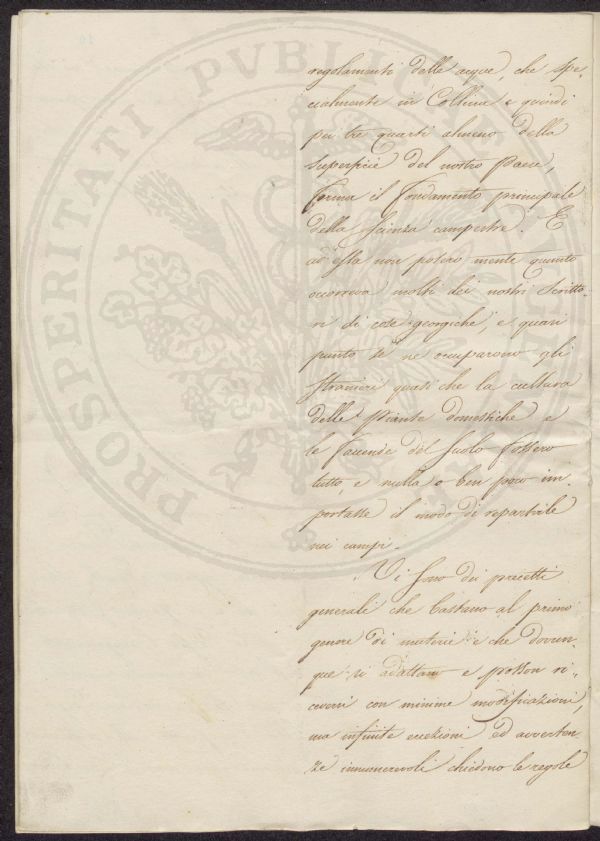 PROSPERITATI PVBLICAE
regolamenti delle acque, che spe-
cialmente in Colline e quindi
per tre quarti almeno della
superficie del nostro Paese,
forma il fondamento principale
della scienza campestre. E
ad essa non poser mente quanto
occorreva molti dei nostri scritto-
ri di cose georgiche, e quasi
punto se ne occuparono gli
stranieri quasi che la cultura
delle Piante domestiche e
le faccende del suolo fossero
tutto, e nulla o ben poco im-
portasse il modo di repartirle
nei campi.
Vi sono dei precetti
generali che bastano al primo
genere di materie e che dovun-
que si adattano e posson ri-
ceversi con minime modificazioni,
ma infinite eccezioni ed avverten-
ze innumerevoli chiedono le regole